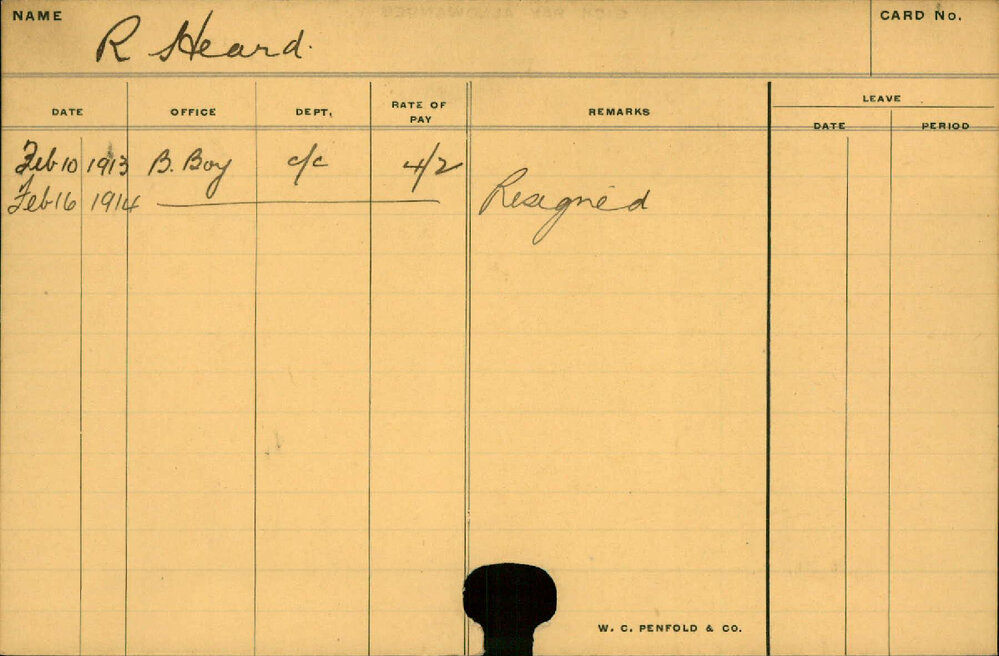 NAME R Heard. CARD No.
DATE OFFICE DEPT. RATE OF PAY REMARKS LEAVE
DATE PERIOD
Feb 10 1913 B. Boy c/c 4/2
Feb 16 1914 Resigned
W. C. PENFOLD & CO.